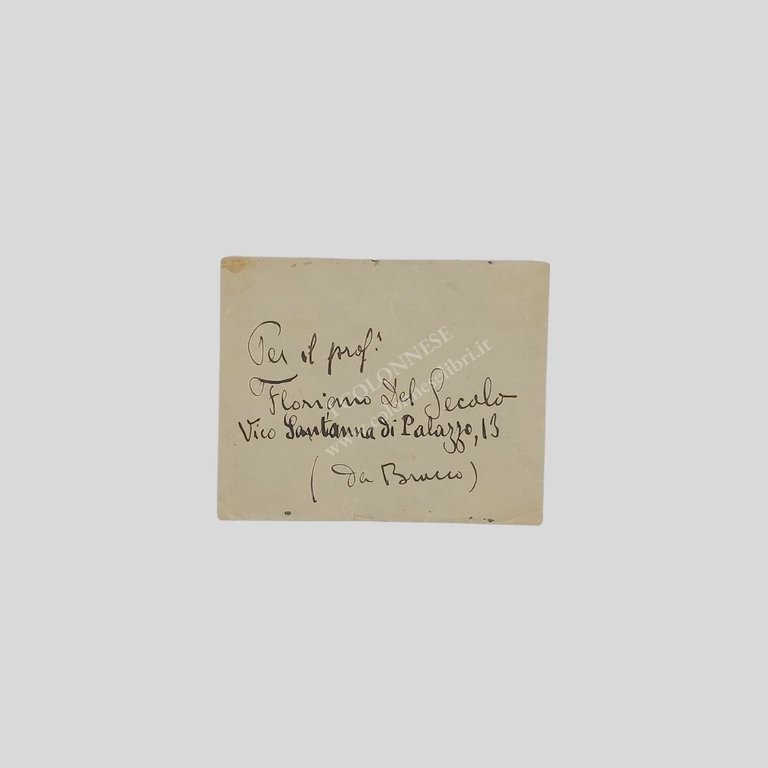 Per il prof.
Floriano Del Secolo
Vico Santanna di Palazzo, 13
(Da Bracco)
COLONNESE
www.colonneselibri.it